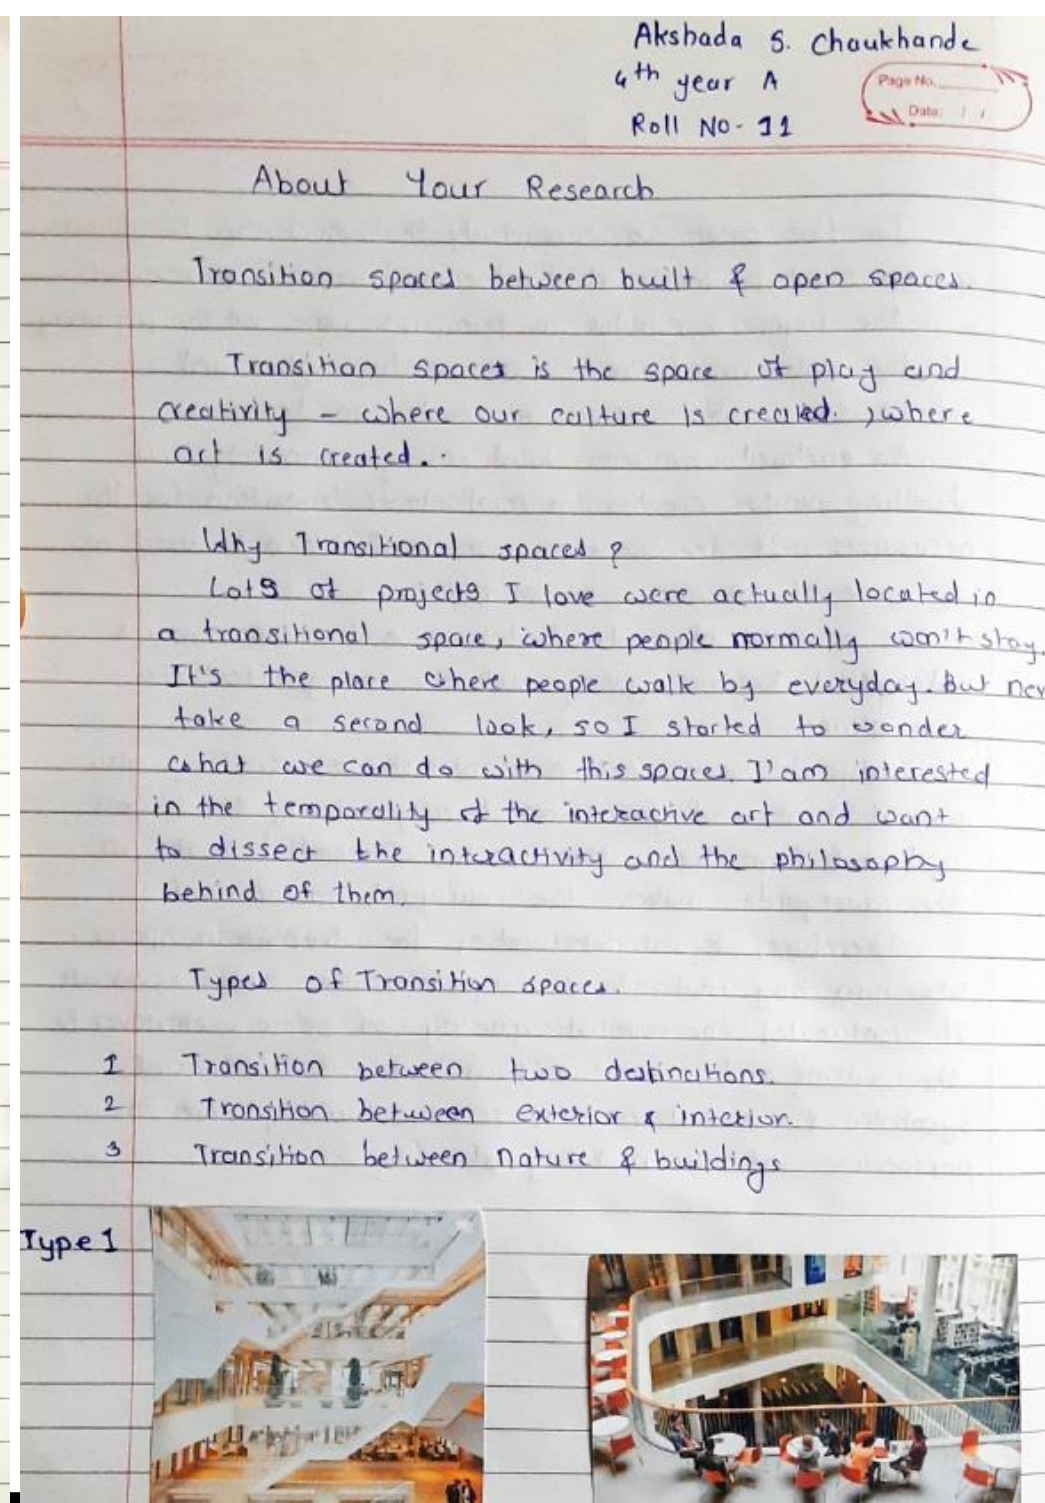 Akshada S. Chaukhande
4th year A
Page No.
Date: / /
Roll No - 11
About Your Research
Transition spaces between built & open spaces.
Transition spaces is the space of play and
creativity - where our culture is created. , where
art is created.
Why Transitional spaces ?
Lots of projects I love were actually located in
a transitional space, where people normally won't stay.
It's the place where people walk by everyday. But nev
take a second look, so I started to wonder
what we can do with this spaces. I'am interested
in the temporality of the interactive art and want
to dissect the interactivity and the philosophy
behind of them.
Types of Transition spaces.
1 Transition between two destinations.
2 Transition between exterior & interior.
3 Transition between nature & buildings
Type 1